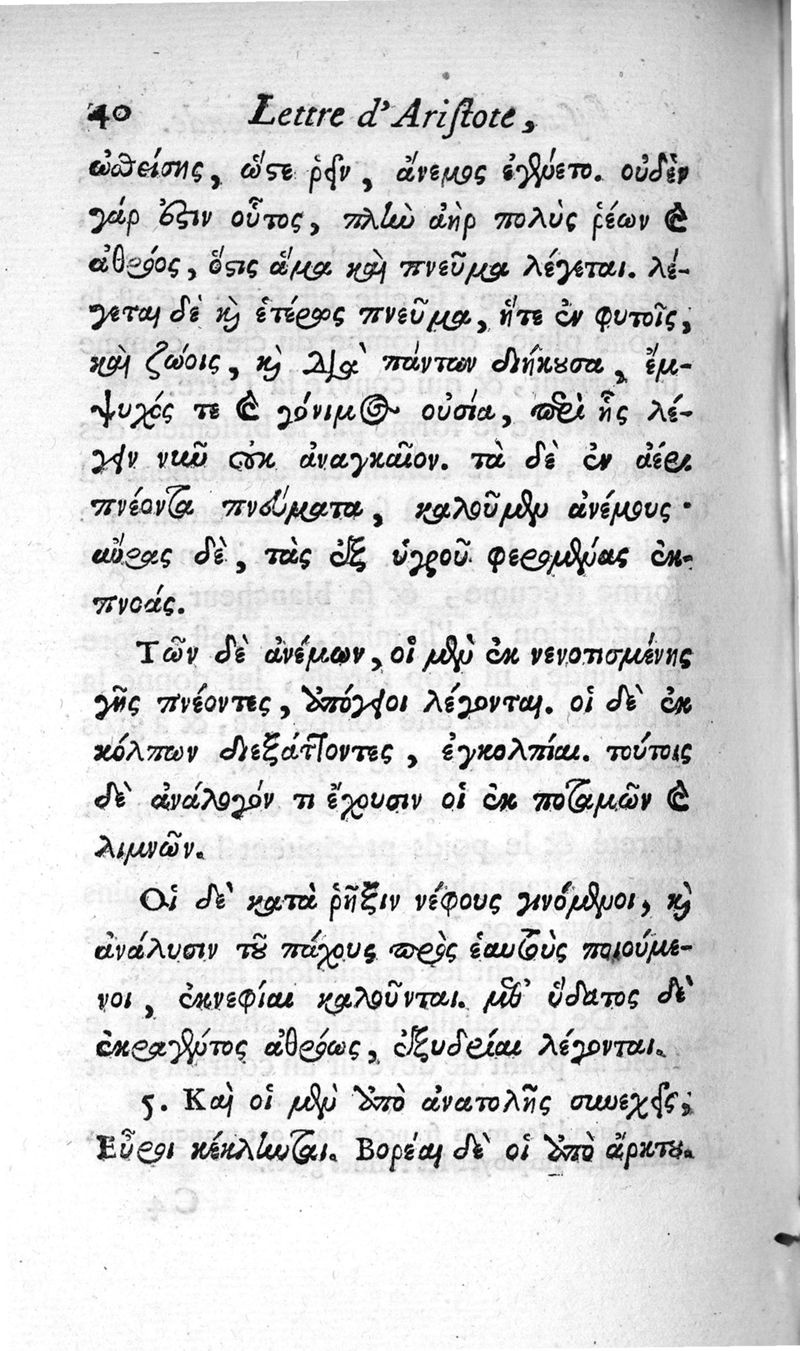 40 Lettre d'Aristote,
ὠθείσης, ὥστε ῥεῖν, ἄνεμος ἐγένετο. οὐδὲν
γάρ ἐστιν οὗτος, πλὴν ἀὴρ πολὺς ῥέων καὶ
ἀθρόος, ὅστις ἅμα καὶ πνεῦμα λέγεται. λέ-
γεται δὲ καὶ ἑτέρως πνεῦμα, ἥτε ἐν φυτοῖς,
καὶ ζώοις, καὶ διὰ πάντων διήκουσα, ἔμ-
ψυχός τε καὶ γόνιμος οὐσία, περὶ ἧς λέ-
γειν νῦν οὐκ ἀναγκαῖον. τὰ δὲ ἐν ἀέρι
πνέοντα πνεύματα, καλοῦμεν ἀνέμους·
αὔρας δὲ, τὰς ἐξ ὑγροῦ φερομένας ἐκ-
πνοάς.
Τῶν δὲ ἀνέμων, οἱ μὲν ἐκ νενοτισμένης
γῆς πνέοντες, ἀπόγειοι λέγονται. οἱ δὲ ἐκ
κόλπων διεξάττοντες, ἐγκολπίαι. τούτοις
δὲ ἀνάλογόν τι ἔχουσιν οἱ ἐκ ποταμῶν καὶ
λιμνῶν.
Οἱ δὲ κατὰ ῥῆξιν νέφους γινόμενοι, καὶ
ἀνάλυσιν τοῦ πάχους πρὸς ἑαυτοὺς ποιούμε-
νοι, ἐκνεφίαι καλοῦνται. μεθ' ὕδατος δὲ
ἐκραγέντος ἀθρόως, ἐξυδρίαι λέγονται.
5. Καὶ οἱ μὲν ἀπὸ ἀνατολῆς συνεχεῖς,
Εὖροι κέκληνται. Βορέαι δὲ οἱ ἀπὸ ἄρκτου.